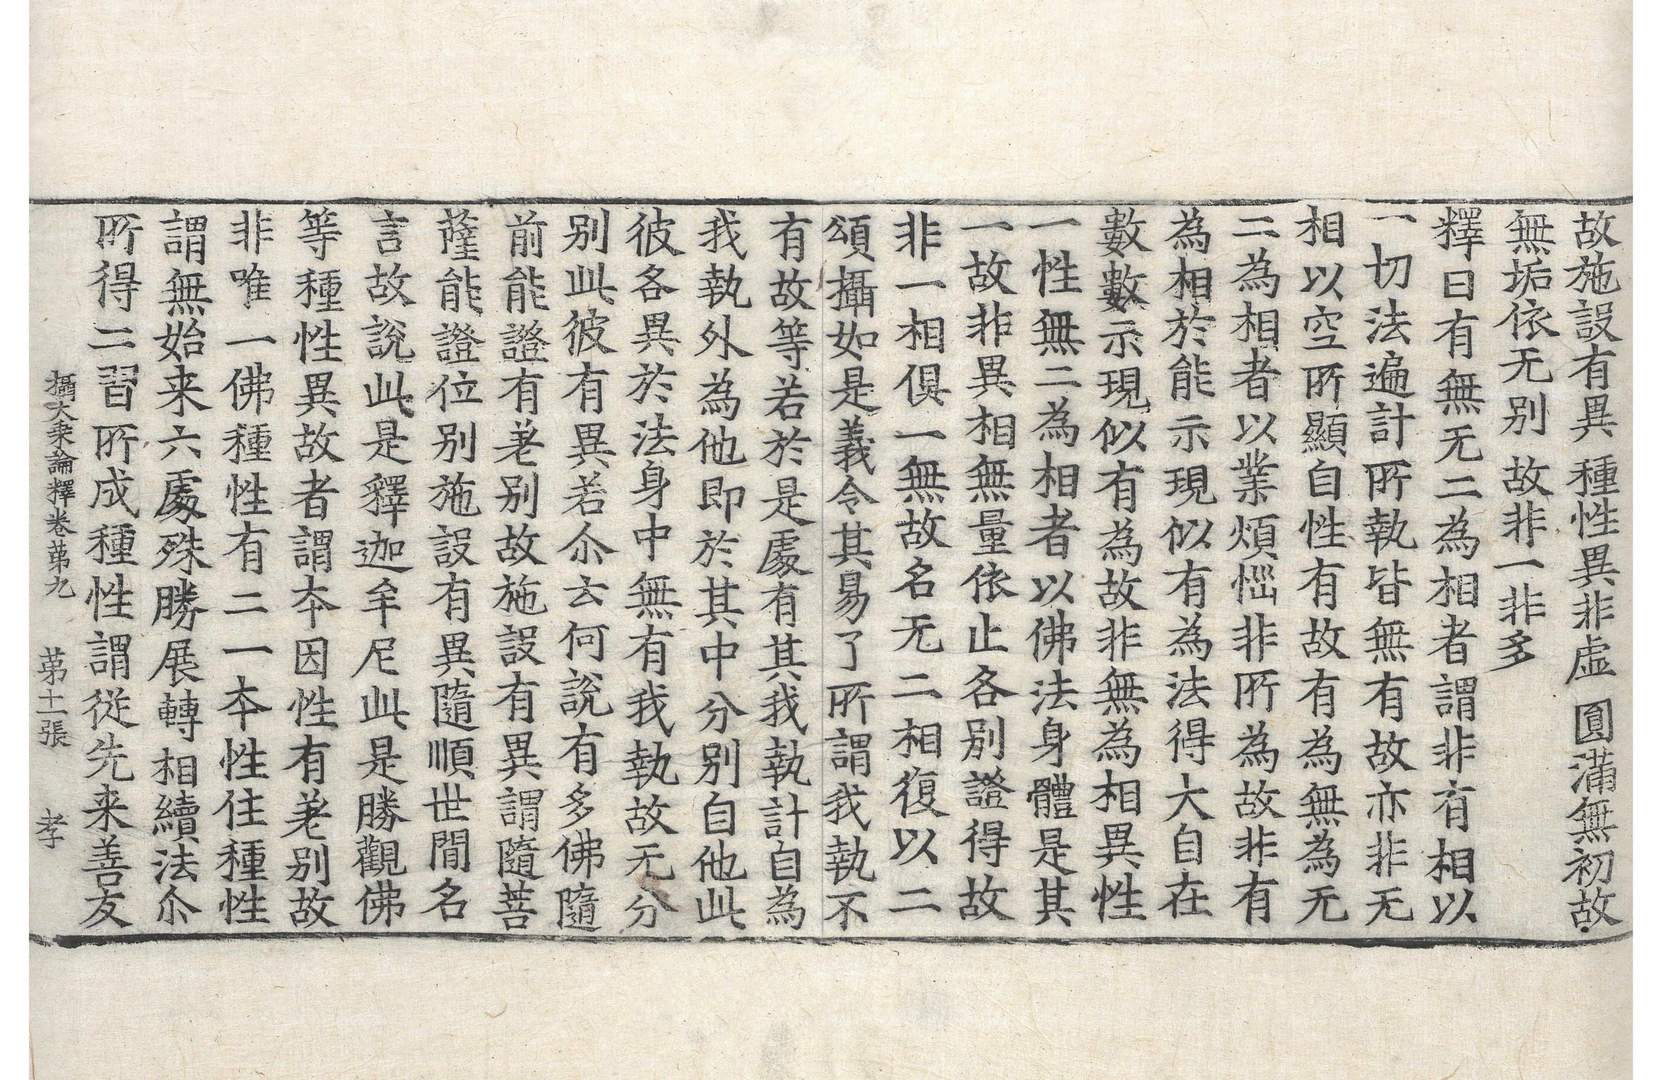 故施設有異　種性異非虛　圓滿無初故
無垢依无别　故非一非多
釋曰有無无二為相者謂非有相以
一切法遍計所執皆無有故亦非无
相以空所顯自性有故有為無為无
二為相者以業煩惱非所為故非有
為相於能示現似有為法得大自在
數數示現似有為故非無為相異性
一性無二為相者以佛法身體是其
一故非異相無量依止各別證得故
非一相俱一無故名无二相復以二
頌攝如是義令其易了所謂我執不
有故等若於是處有其我執計自為
我執外為他即於其中分別自他此
彼各異於法身中無有我執故无分
別此彼有異若尒云何說有多佛隨
前能證有差別故施設有異謂隨菩
薩能證位別施設有異隨順世間名
言故說此是釋迦牟尼此是勝觀佛
等種性異故者謂本因性有差別故
非唯一佛種性有二一本性住種性
謂無始来六處殊勝展轉相續法尒
所得二習所成種性謂從先来善友
攝大乘論釋卷第九　第十一張　孝